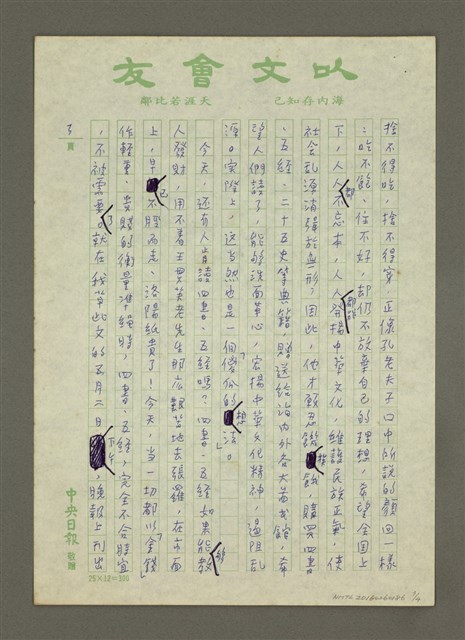 以文會友
海內存知己
天涯若比鄰
捨不得吃，捨不得穿，正像孔老夫子口中所說的顏回一樣
：吃不飽、住不好，却仍不放棄自己的理想，希望全國上
下，人人都不忘本，人人都該發揚中華文化，維護民族正氣，使
社會乱源消弭於無形；因此，他才願忍飢挨餓，購買四書
、五經、二十五史等典籍，贈送給海內外各大圖書館，希
望人們讀了，能够洗面革心，宏揚中華文化精神，遏阻乱
源。實際上，这当然也是一個「傻瓜的想法」。
今天，还有人肯讀四書、五經嗎？四書、五經如果能够教
人發財，用不着王貫英老先生那広艱苦地去張羅，在市面
上，早已不脛而走、洛陽紙貴了！今天，当一切都以「金錢」
作輕重、貴賤的衡量準繩時，四書、五經，完全不合時宜
，不被需要了。就在我草此文的五月二日下午，晚報上刊出
3頁
中央日報 敬贈
25×12=300